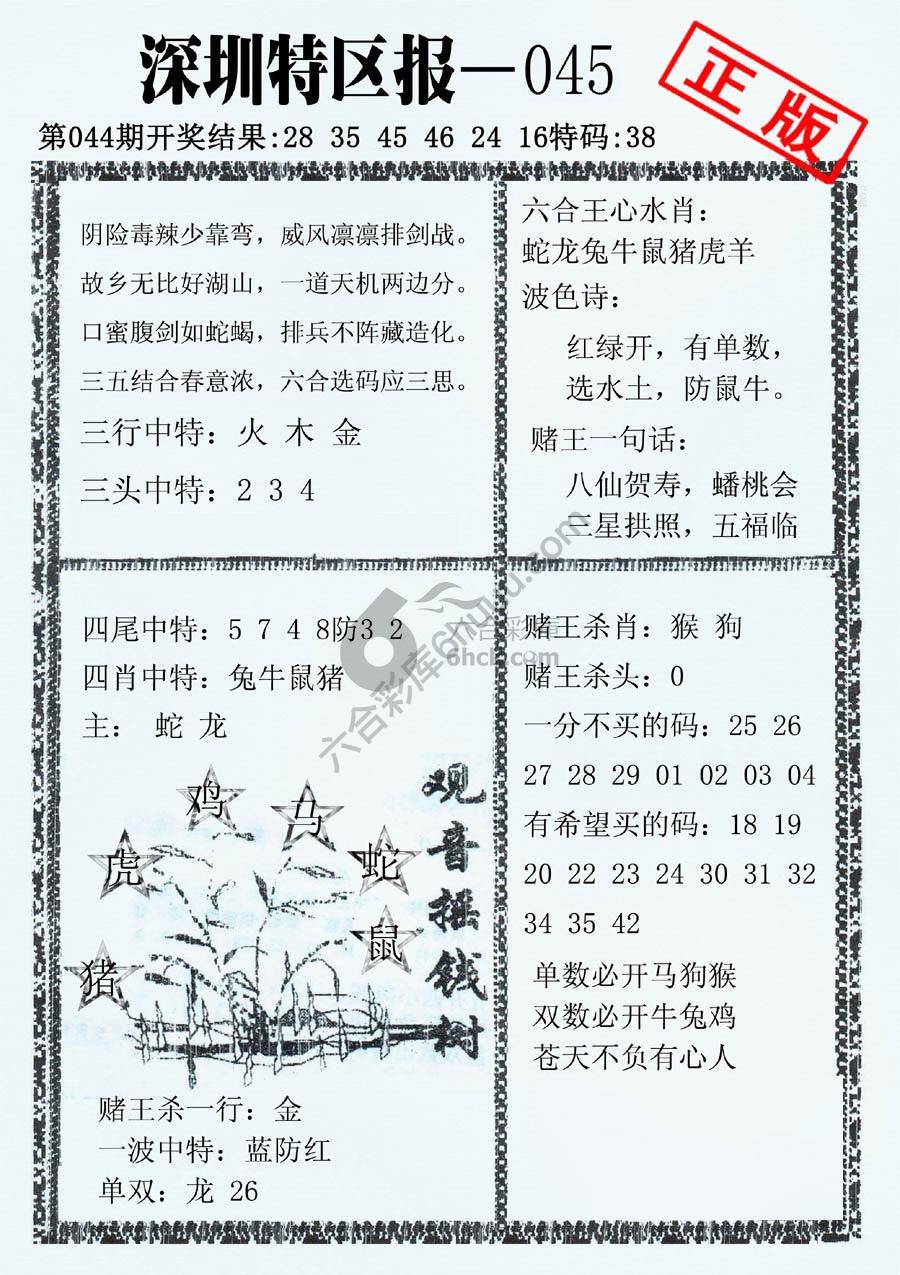 深圳特区报—045
正版
第044期开奖结果:28 35 45 46 24 16特码:38
阴险毒辣少靠弯，威风凛凛排剑战。
故乡无比好湖山，一道天机两边分。
口蜜腹剑如蛇蝎，排兵不阵藏造化。
三五结合春意浓，六合选码应三思。
三行中特：火 木 金
三头中特：2 3 4
六合王心水肖：
蛇龙兔牛鼠猪虎羊
波色诗：
红绿开，有单数，
选水土，防鼠牛。
赌王一句话：
八仙贺寿，蟠桃会
三星拱照，五福临
四尾中特：5 7 4 8防3 2
四肖中特：兔牛鼠猪
主： 蛇 龙
鸡
马
虎
蛇
鼠
猪
观音摇钱树
赌王杀一行：金
一波中特：蓝防红
单双：龙 26
赌王杀肖：猴 狗
赌王杀头：0
一分不买的码：25 26
27 28 29 01 02 03 04
有希望买的码：18 19
20 22 23 24 30 31 32
34 35 42
单数必开马狗猴
双数必开牛兔鸡
苍天不负有心人